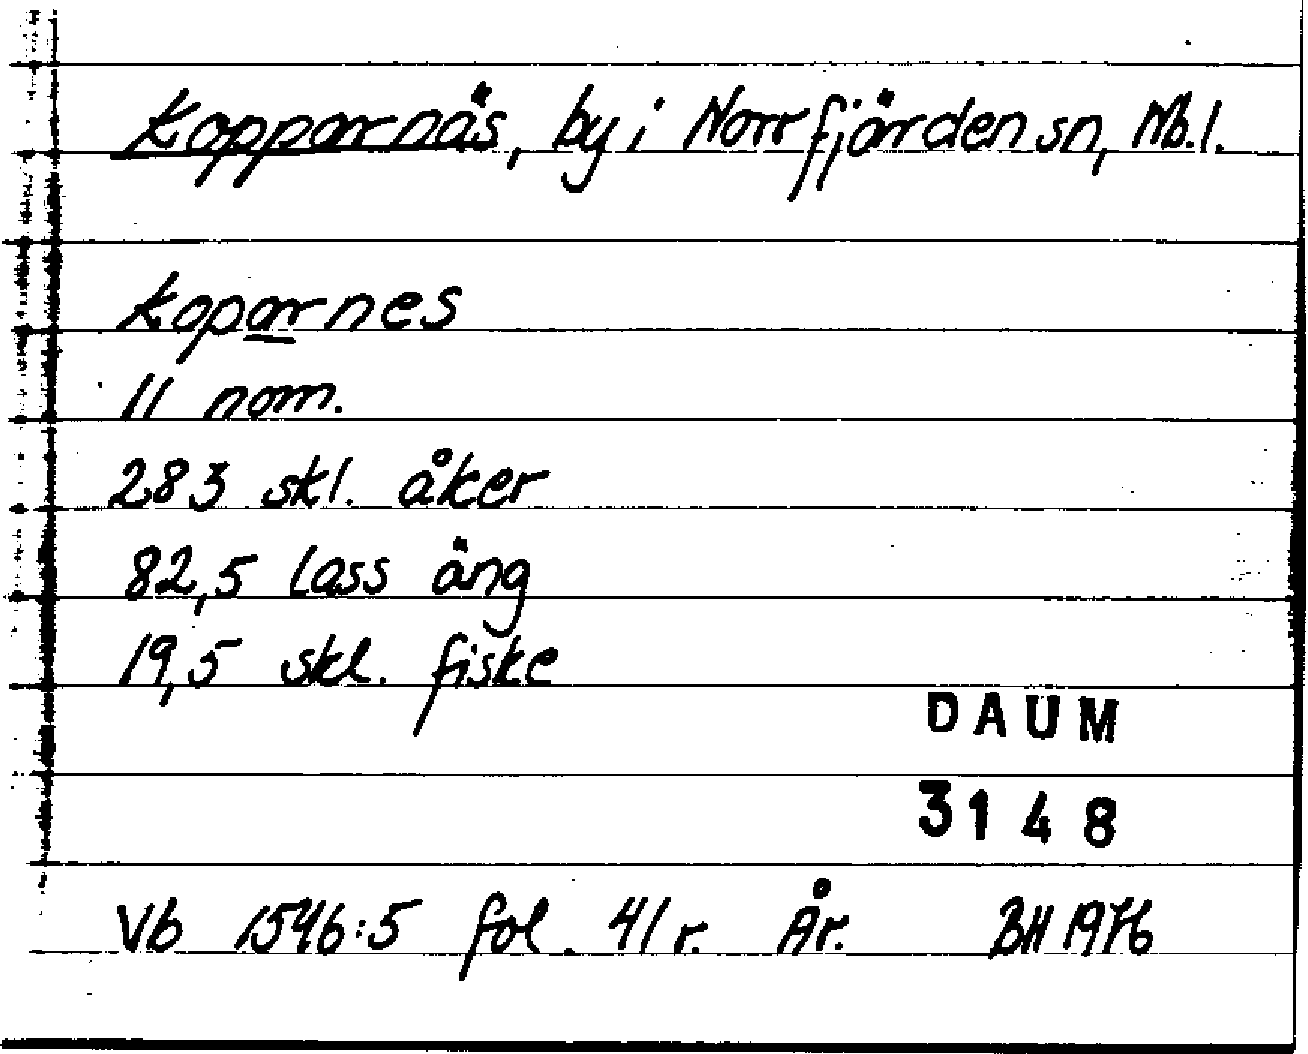 Kopparnäs, by i Norrfjärden sn, Nb.l.
Koparnes
11 nom.
283 skl. åker
82,5 lass äng
19,5 skl. fiske
DAUM
3148
Vb 1546:5 fol. 41 r. År. BH 1976